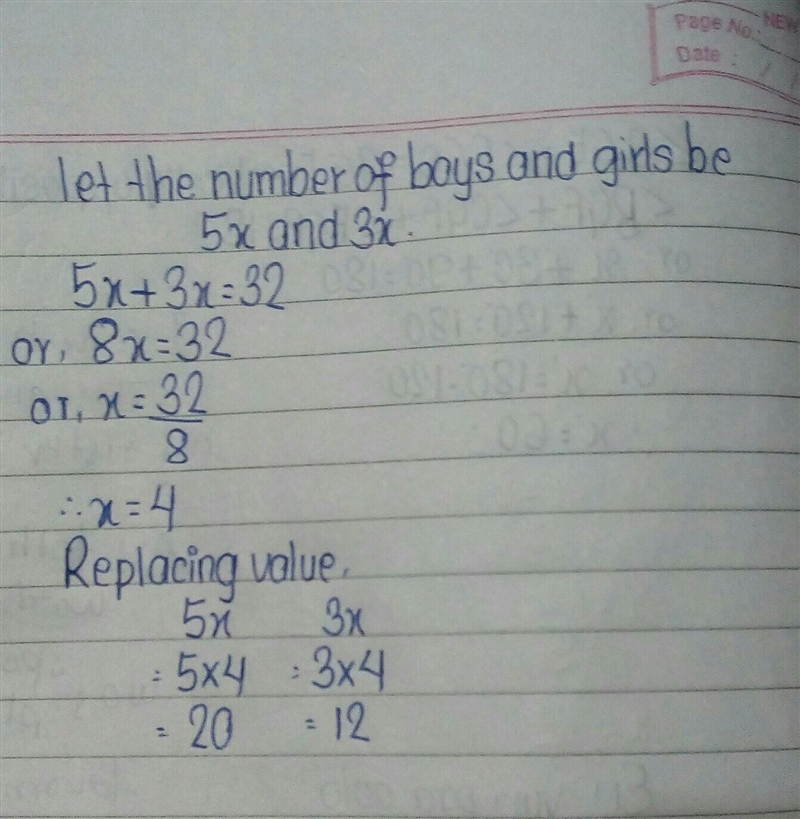 Page No.: NEW
Date : / /
let the number of boys and girls be
5x and 3x.
5x+3x=32
or, 8x=32
or, x=32/8
∴x=4
Replacing value,
5x 3x
=5×4 =3×4
=20 =12